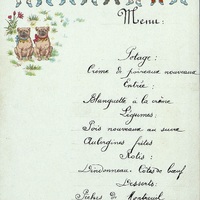 Menu:
Potage:
Crème de poireaux nouveaux
Entrée:
Blanquette à la reine
Légumes:
Pois nouveaux au sucre
Aubergines frites
Rotis:
Dindonneau Côtes de bœuf
Desserts:
Pêches de Montreuil